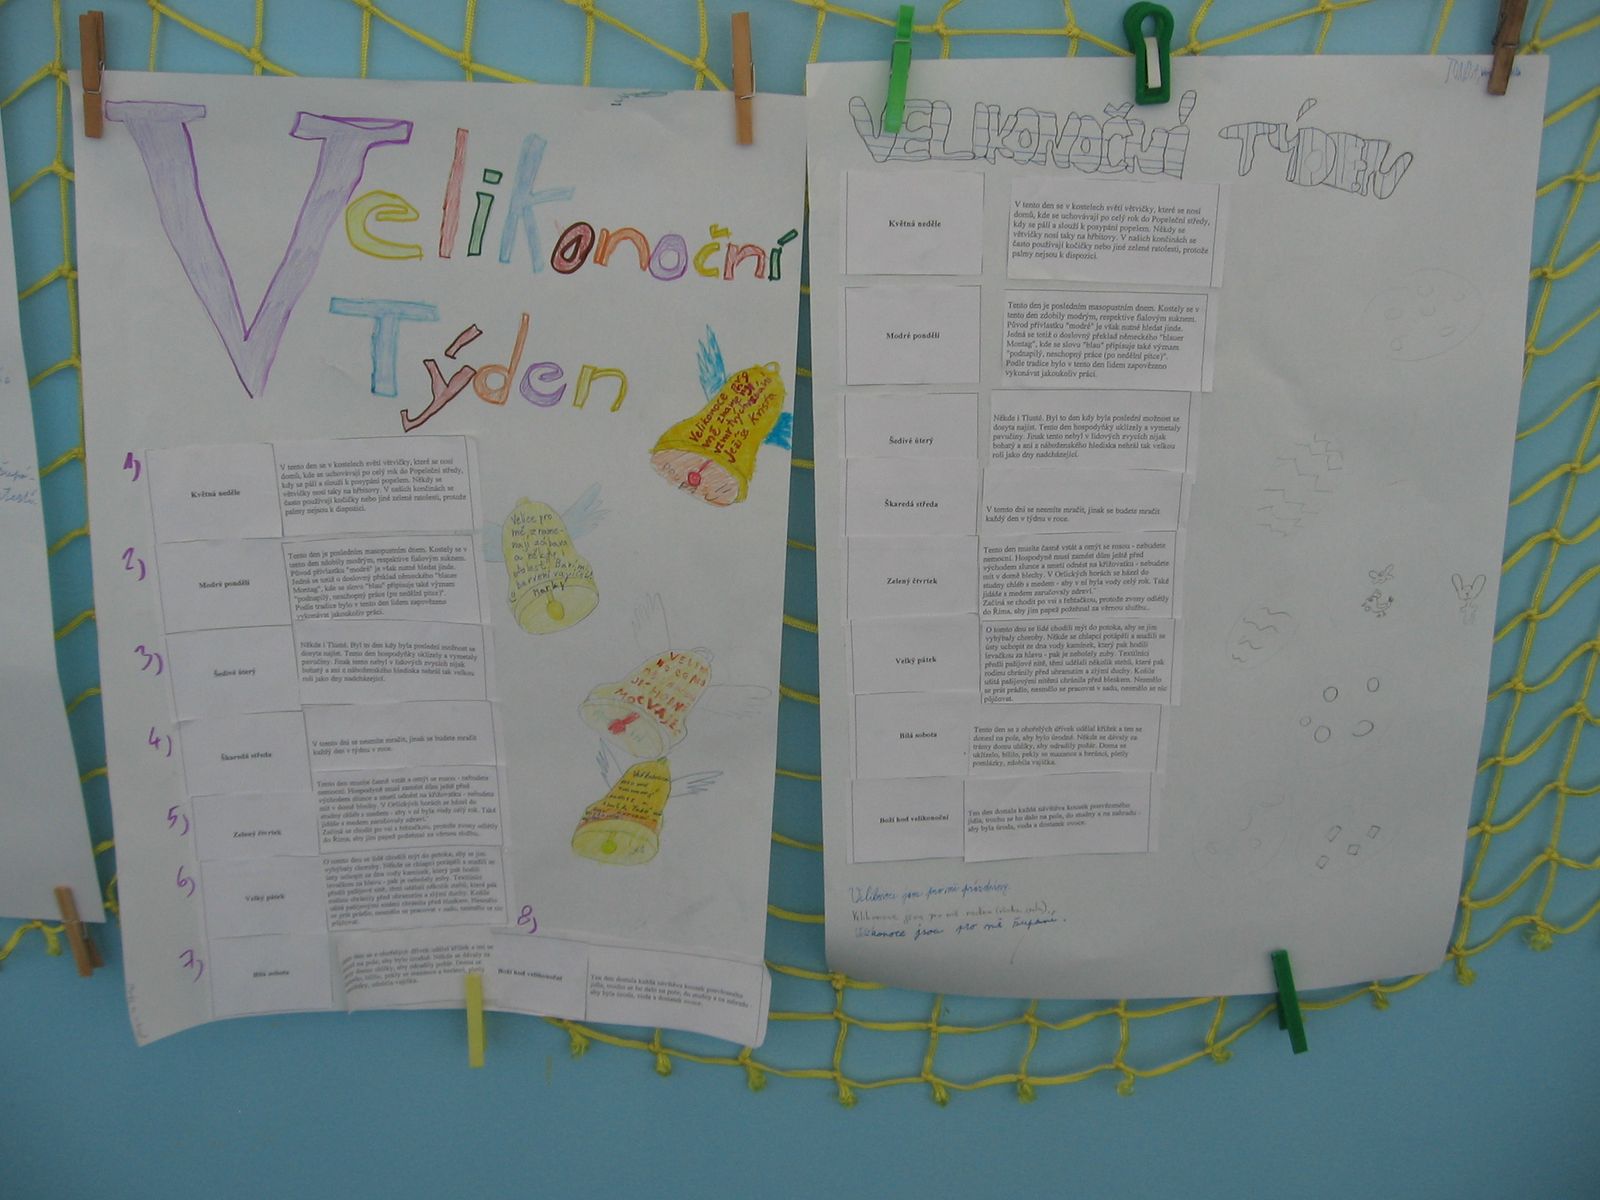 Velikonoční
Týden
1)
Květná neděle
V tento den se v kostelech světí větvičky, které se nosí
domů, kde se uchovávají po celý rok do Popeleční středy,
kdy se pálí a slouží k posypání popelem. Někdy se
větvičky nosí taky na hřbitovy. V našich končinách se
často používají kočičky nebo jiné zelené ratolesti, protože
palmy nejsou k dispozici.
2)
Modré pondělí
Tento den je posledním masopustním dnem. Kostely se v
tento den zdobily modrým, respektive fialovým suknem.
Původ přívlastku "modré" je však nutné hledat jinde.
Jedná se totiž o doslovný překlad německého "blauer
Montag", kde se slovu "blau" připisuje také význam
"podnapilý, neschopný práce (po nedělní pitce)".
Podle tradice bylo v tento den lidem zapovězeno
vykonávat jakoukoliv práci.
3)
Šedivé úterý
Někde i Tlusté. Byl to den kdy byla poslední možnost se
dosyta najíst. Tento den hospodyňky uklízely a vymetaly
pavučiny. Jinak tento nebyl v lidových zvycích nijak
bohatý a ani z náboženského hlediska nehrál tak velkou
roli jako dny nadcházející.
4)
Škaredá středa
V tomto dni se nesmíte mračit, jinak se budete mračit
každý den v týdnu v roce.
5)
Zelený čtvrtek
Tento den musíte časně vstát a omýt se rosou - nebudete
nemocní. Hospodyně musí zamést dům ještě před
východem slunce a smetí odnést na křižovatku - nebudete
mít v domě blechy. V Orlických horách se házel do
studny chléb s medem - aby v ní byla vody celý rok. Také
jidáše s medem zaručovaly zdraví."
Začíná se chodit po vsi s řehtačkou, protože zvony odlétly
do Říma, aby jim papež požehnal za věrnou službu.
6)
Velký pátek
O tomto dnu se lidé chodili mýt do potoka, aby se jim
vyhýbaly choroby. Někde se chlapci potápěli a snažili se
ústy uchopit ze dna vody kamínek, který pak hodili
levačkou za hlavu - pak je nebolely zuby. Textilníci
předli pašijové nitě, těmi udělali několik stehů, které pak
rodinu chránily před uhranutím a zlými duchy. Košile
ušitá pašijovými nitěmi chránila před bleskem. Nesmělo
se prát prádlo, nesmělo se pracovat v sadu, nesmělo se nic
půjčovat.
7)
Bílá sobota
8)
Boží hod velikonoční
Ten den dostala každá návštěva kousek posvěceného
jídla, trochu se ho dalo na pole, do studny a na zahradu -
aby byla úroda, voda a dostatek ovoce.
Velikonoce pro
mě znamenají
vzmrtvýchvstání
Ježíše Krista
VELIKONOČNÍ TÝDEN
Květná neděle
V tento den se v kostelech světí větvičky, které se nosí
domů, kde se uchovávají po celý rok do Popeleční středy,
kdy se pálí a slouží k posypání popelem. Někdy se
větvičky nosí taky na hřbitovy. V našich končinách se
často používají kočičky nebo jiné zelené ratolesti, protože
palmy nejsou k dispozici.
Modré pondělí
Tento den je posledním masopustním dnem. Kostely se v
tento den zdobily modrým, respektive fialovým suknem.
Původ přívlastku "modré" je však nutné hledat jinde.
Jedná se totiž o doslovný překlad německého "blauer
Montag", kde se slovu "blau" připisuje také význam
"podnapilý, neschopný práce (po nedělní pitce)".
Podle tradice bylo v tento den lidem zapovězeno
vykonávat jakoukoliv práci.
Šedivé úterý
Někde i Tlusté. Byl to den kdy byla poslední možnost se
dosyta najíst. Tento den hospodyňky uklízely a vymetaly
pavučiny. Jinak tento nebyl v lidových zvycích nijak
bohatý a ani z náboženského hlediska nehrál tak velkou
roli jako dny nadcházející.
Škaredá středa
V tomto dni se nesmíte mračit, jinak se budete mračit
každý den v týdnu v roce.
Zelený čtvrtek
Tento den musíte časně vstát a omýt se rosou - nebudete
nemocní. Hospodyně musí zamést dům ještě před
východem slunce a smetí odnést na křižovatku - nebudete
mít v domě blechy. V Orlických horách se házel do
studny chléb s medem - aby v ní byla vody celý rok. Také
jidáše s medem zaručovaly zdraví."
Začíná se chodit po vsi s řehtačkou, protože zvony odlétly
do Říma, aby jim papež požehnal za věrnou službu..
Velký pátek
O tomto dnu se lidé chodili mýt do potoka, aby se jim
vyhýbaly choroby. Někde se chlapci potápěli a snažili se
ústy uchopit ze dna vody kamínek, který pak hodili
levačkou za hlavu - pak je nebolely zuby. Textilníci
předli pašijové nitě, těmi udělali několik stehů, které pak
rodinu chránily před uhranutím a zlými duchy. Košile
ušitá pašijovými nitěmi chránila před bleskem. Nesmělo
se prát prádlo, nesmělo se pracovat v sadu, nesmělo se nic
půjčovat.
Bílá sobota
Tento den se z ohořelých dřívek udělal křížek a ten se
donesl na pole, aby bylo úrodné. Někde se dávaly za
trámy domu uhlíky, aby odradily požár. Doma se
uklízelo, bílilo, pekly se mazance a beránci, pletly
pomlázky, zdobila vajíčka.
Boží hod velikonoční
Ten den dostala každá návštěva kousek posvěceného
jídla, trochu se ho dalo na pole, do studny a na zahradu -
aby byla úroda, voda a dostatek ovoce.
Velikonoce jsou pro mě prázdniny.
Velikonoce jsou pro mě
Velikonoce jsou pro mě